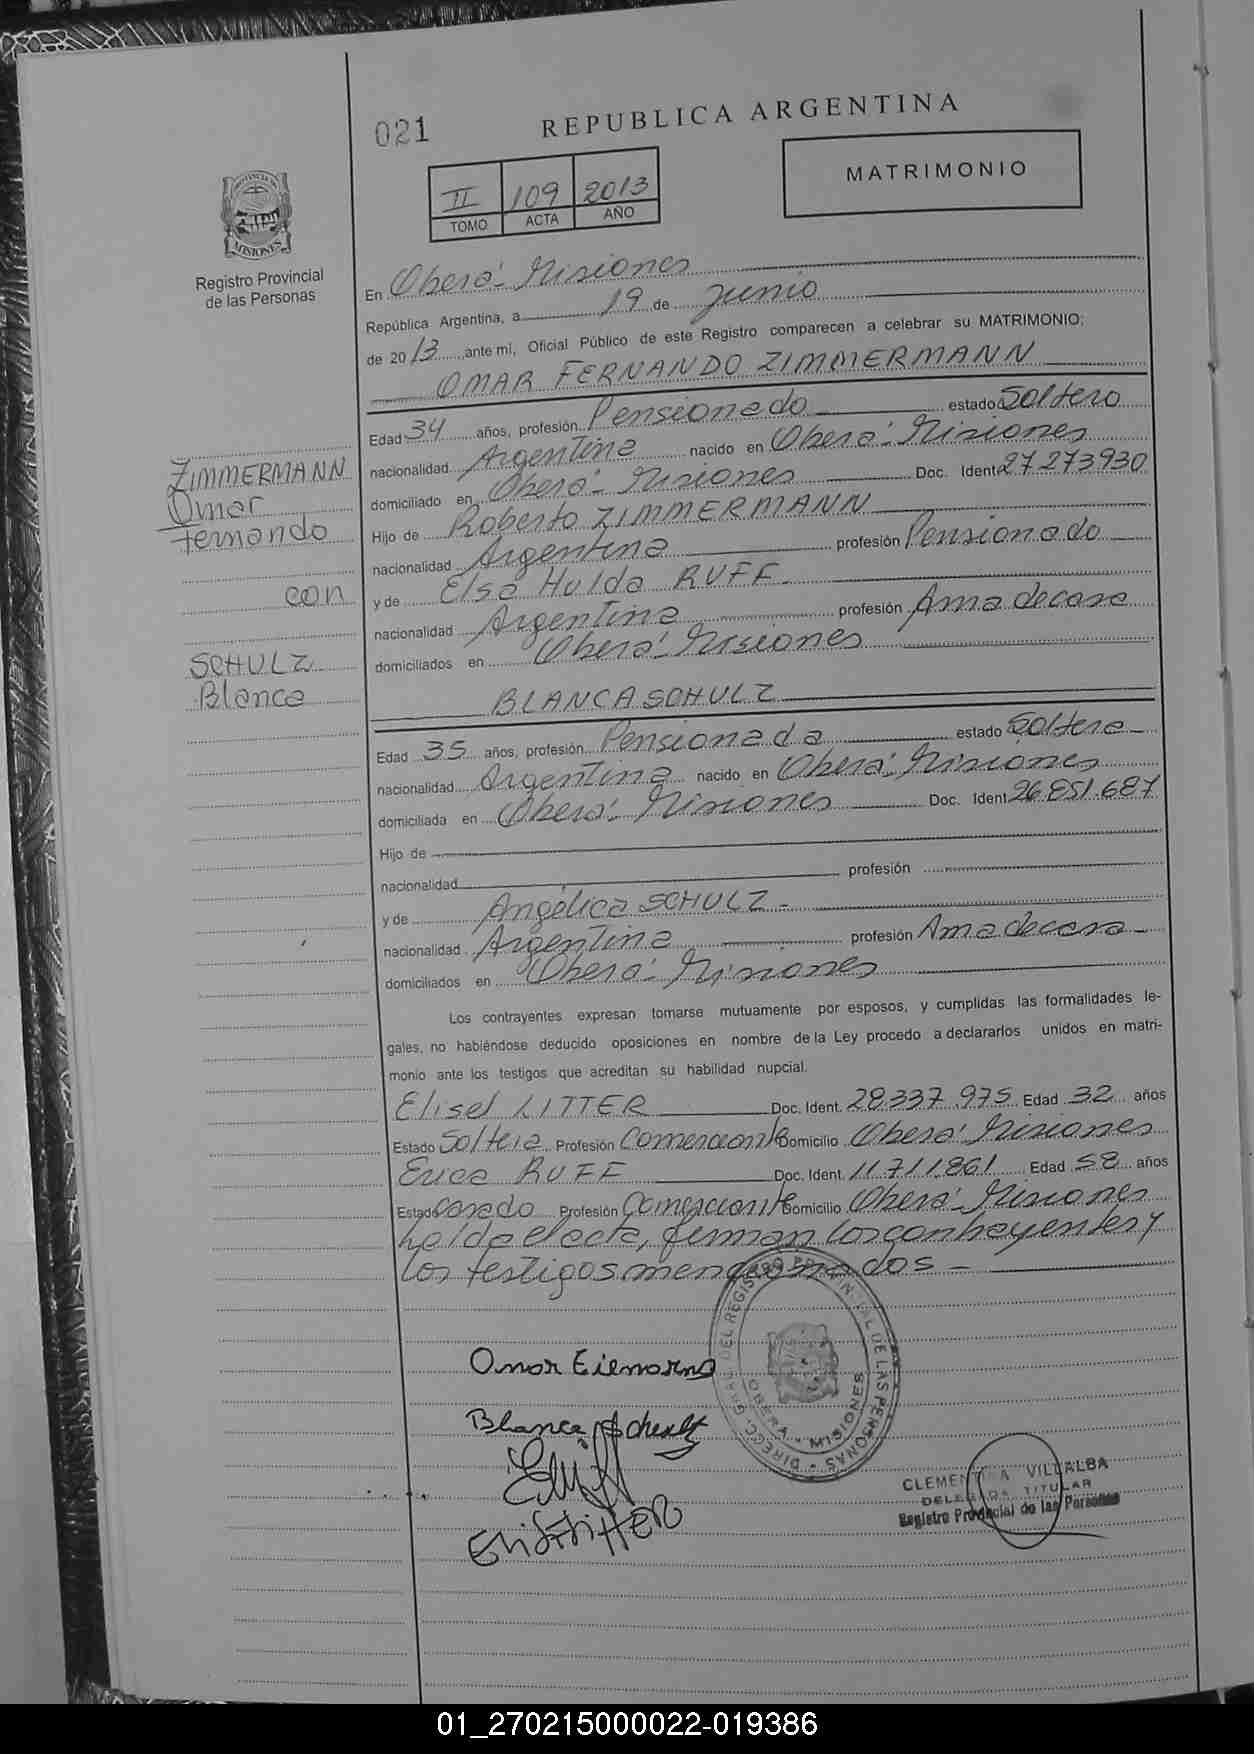 021
REPUBLICA ARGENTINA
II 109 2013
TOMO ACTA AÑO
MATRIMONIO
PROVINCIA DE
MISIONES
Registro Provincial
de las Personas
En Oberá - Misiones
República Argentina, a 19 de Junio
de 2013, ante mí, Oficial Público de este Registro comparecen a celebrar su MATRIMONIO:
OMAR FERNANDO ZIMMERMANN
Edad 34 años, profesión Pensionado estado Soltero
nacionalidad Argentina nacido en Oberá - Misiones
domiciliado en Oberá - Misiones Doc. Ident. 27.273.930
Hijo de Roberto ZIMMERMANN
nacionalidad Argentina profesión Pensionado
y de Elsa Hulda RUFF
nacionalidad Argentina profesión Ama de casa
domiciliados en Oberá - Misiones
ZIMMERMANN
Omar
Fernando
con
SCHULZ
Blanca
BLANCA SCHULZ
Edad 35 años, profesión Pensionada estado Soltera
nacionalidad Argentina nacido en Oberá - Misiones
domiciliada en Oberá - Misiones Doc. Ident. 26.851.687
Hijo de
nacionalidad profesión
y de Angélica SCHULZ -
nacionalidad Argentina profesión Ama de casa
domiciliados en Oberá - Misiones
Los contrayentes expresan tomarse mutuamente por esposos, y cumplidas las formalidades le-
gales, no habiéndose deducido oposiciones en nombre de la Ley procedo a declararlos unidos en matri-
monio ante los testigos que acreditan su habilidad nupcial.
Elisel LITTER Doc. Ident. 28.337.975 Edad 32 años
Estado Soltera Profesión Comerciante Domicilio Oberá - Misiones
Erica RUFF Doc. Ident. 11.711.861 Edad 58 años
Estado casado Profesión Comerciante Domicilio Oberá - Misiones
Leída el acta, firman los contrayentes y
los testigos mencionados -
DIRECC. GRAL. DEL REGISTRO PROVINCIAL DE LAS PERSONAS
OBERA - MISIONES
Omar
Blanca Schulz
CLEMENTINA VILLALBA
DELEGADA TITULAR
Registro Provincial de las Personas
01_270215000022-019386